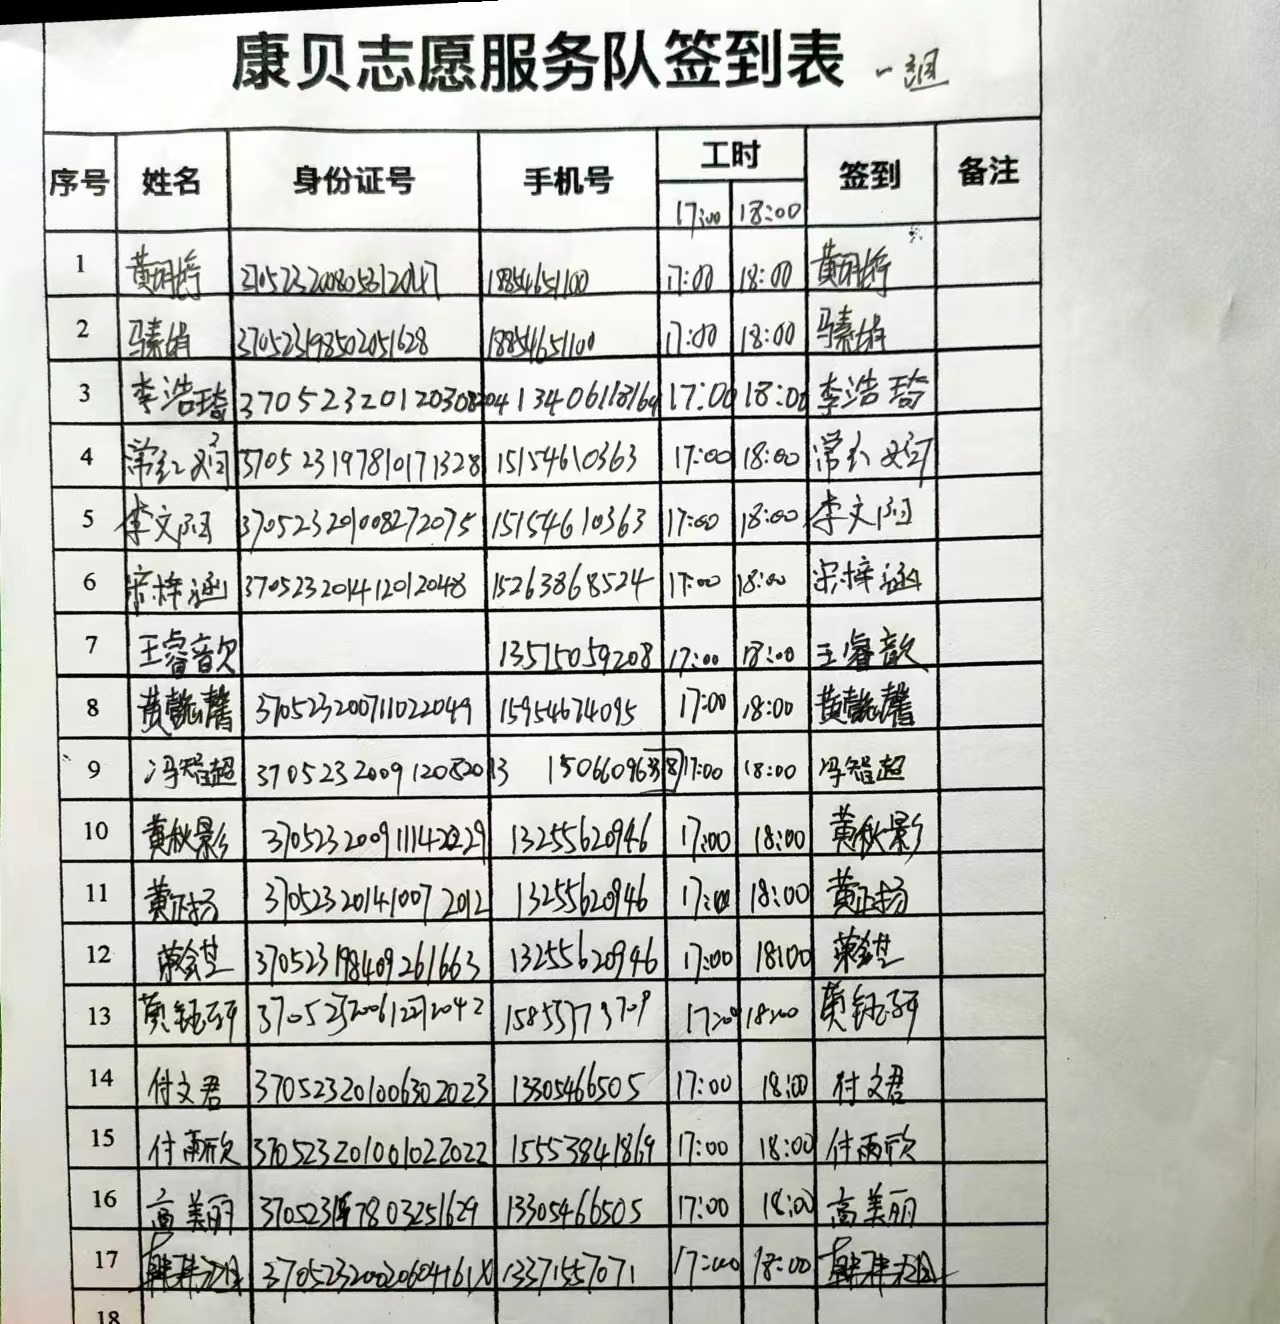 康贝志愿服务队签到表
序号 姓名 身份证号 手机号 工时 签到 备注
17:00 18:00
1 18854651100 17:00 18:00
2 马素娟 370523198502051628 18854651100 17:00 18:00 马素娟
3 李浩琦 13406118164 17:00 18:00 李浩琦
4 370523197810171328 15154610363 17:00 18:00
5 李文 370523201008272075 15154610363 17:00 18:00 李文
6 宋梓涵 370523201412012048 15263868524 17:00 18:00 宋梓涵
7 王睿歆 13515059208 17:00 18:00 王睿歆
8 黄懿馨 370523200711022049 15954674095 17:00 18:00 黄懿馨
9 冯智超 370523200912082013 17:00 18:00 冯智超
10 黄秋影 13255620946 17:00 18:00 黄秋影
11 黄正扬 370523201410072012 13255620946 17:00 18:00 黄正扬
12 370523198409261663 13255620946 17:00 18:00
13 黄钰珂 17:00 18:00 黄钰珂
14 付文君 370523201006302023 13305466505 17:00 18:00 付文君
15 付雨欣 370523201001022022 15553841869 17:00 18:00 付雨欣
16 高美丽 370523197803251629 13305466505 17:00 18:00 高美丽
17 13371557071 17:00 18:00
18